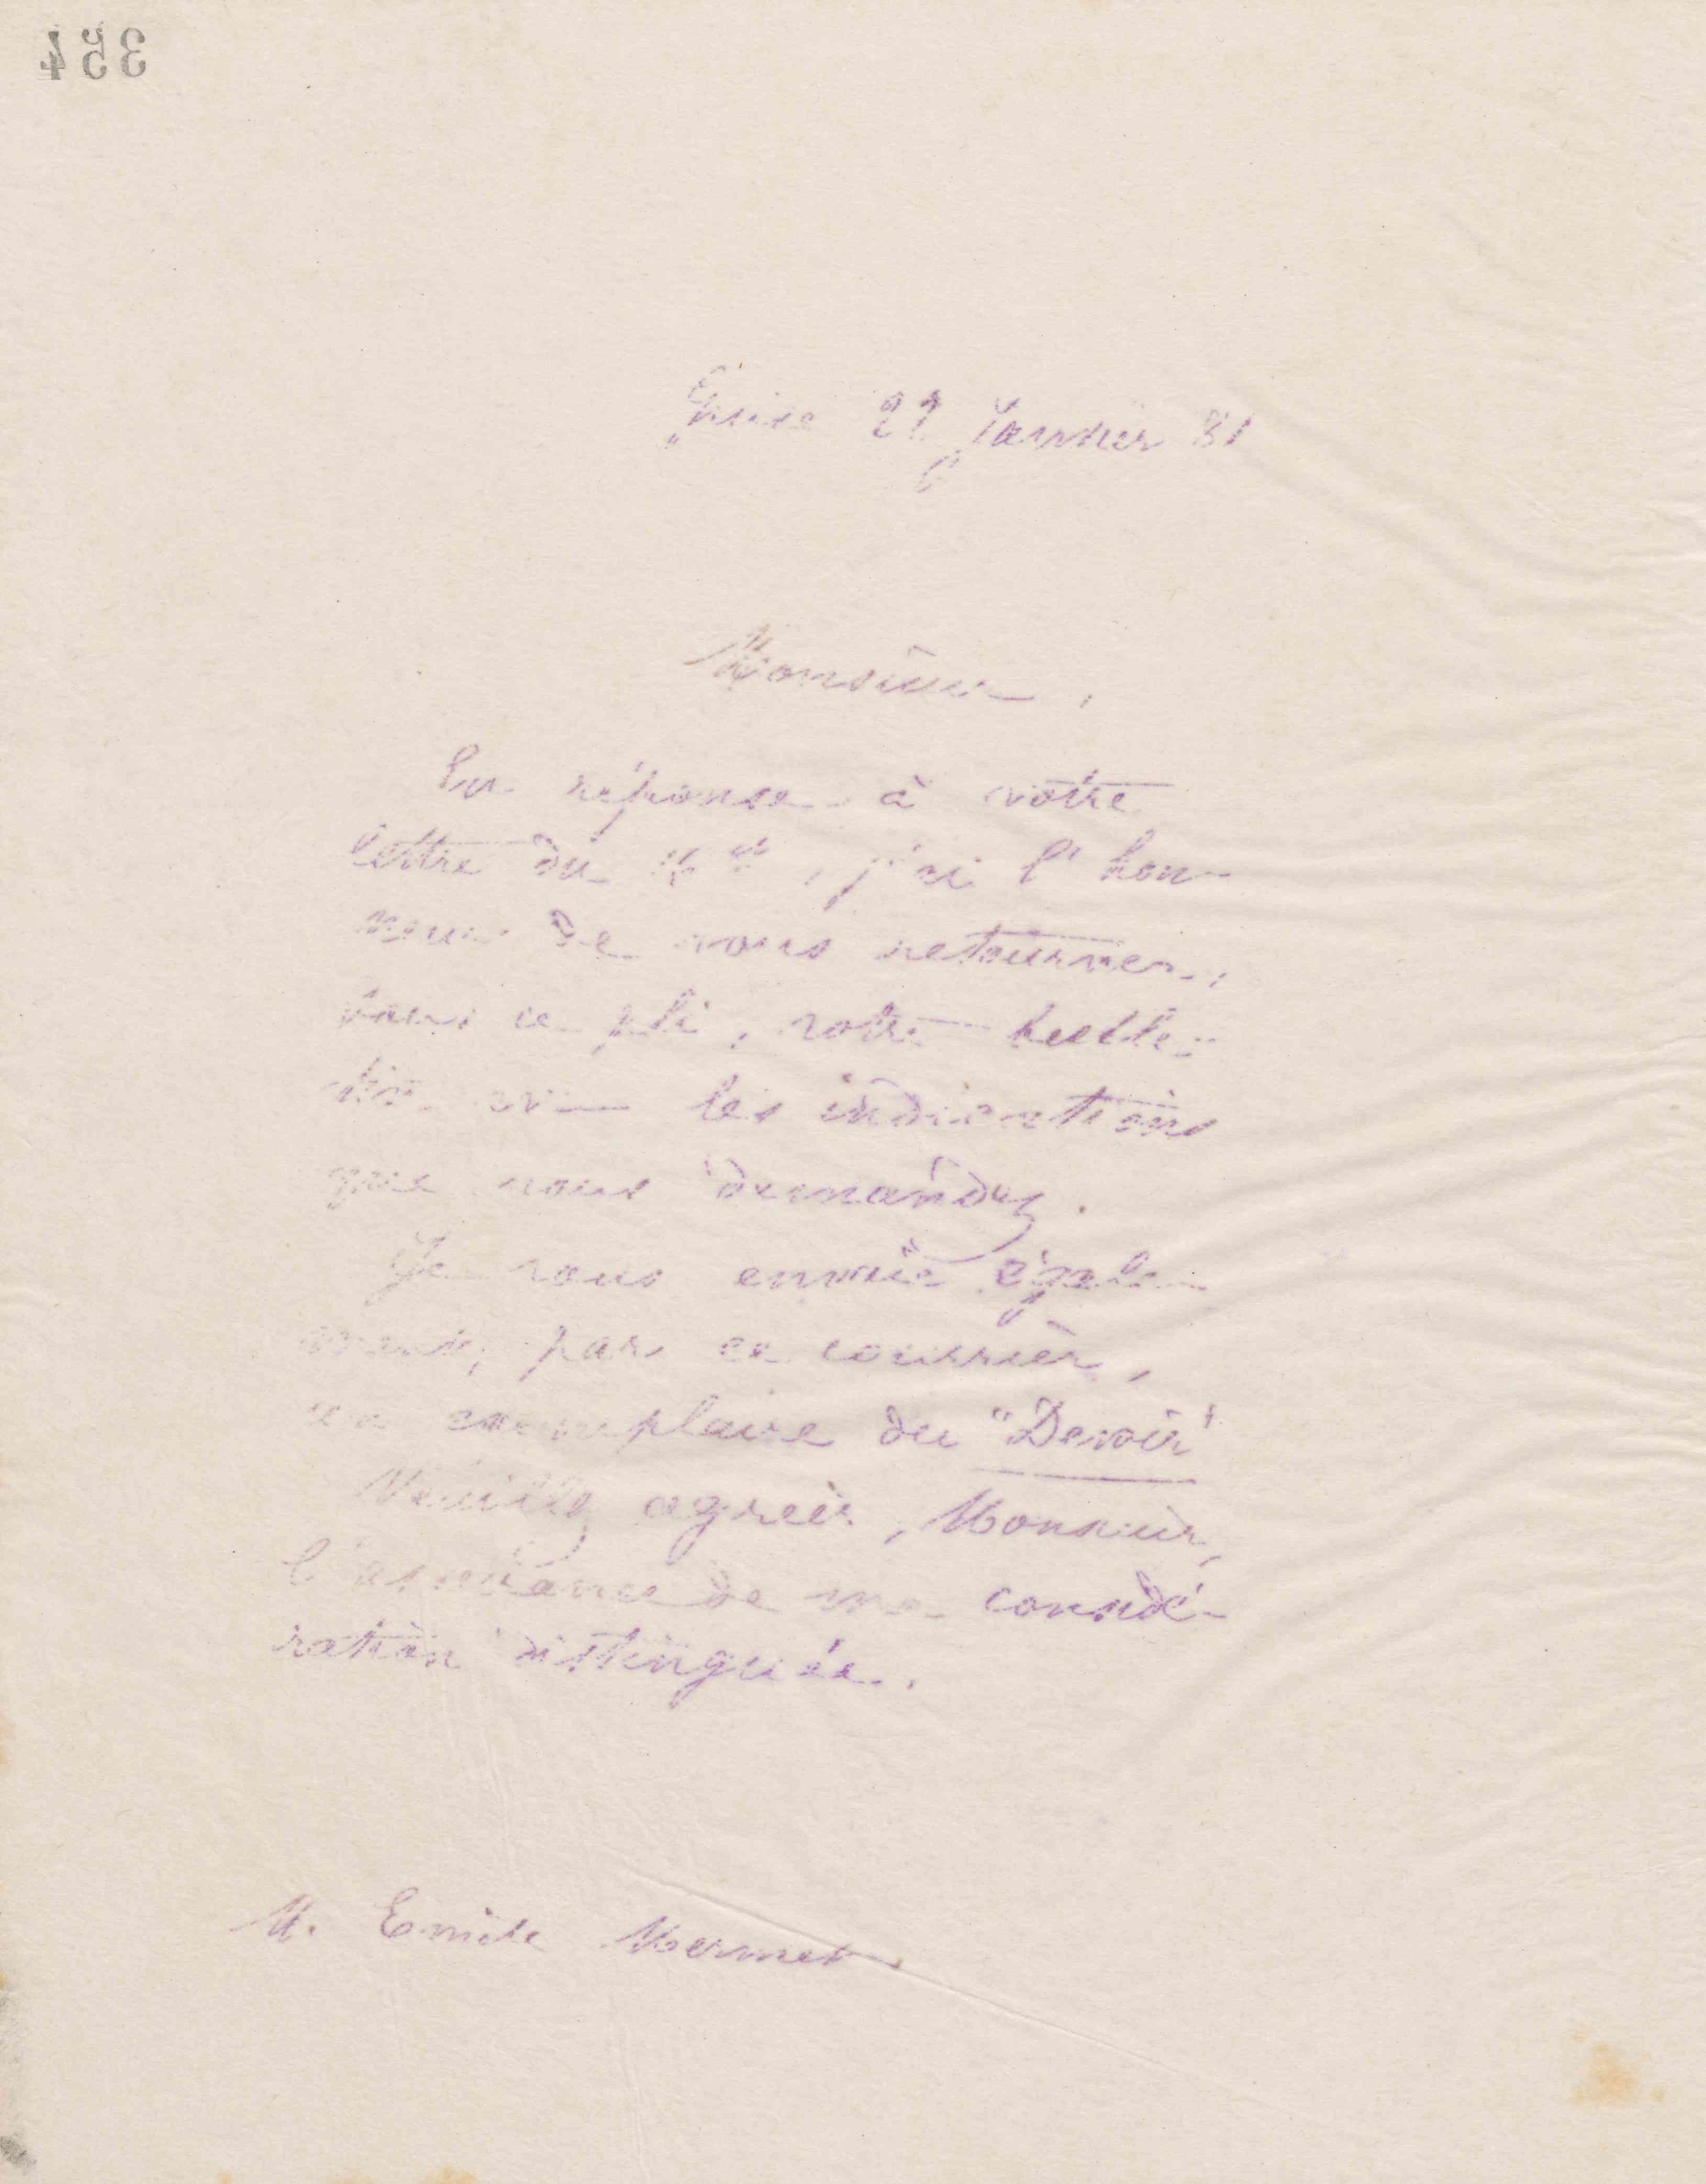 354
Guise 22 Janvier 81
Monsieur,
En réponse à votre
lettre du j'ai l'hon-
neur de vous retourner,
sous ce pli, votre bulle-
tin avec les indications
que vous demandez.
Je vous envoie égale-
ment, par ce courrier,
un exemplaire du "Devoir"
Veuillez agréer, Monsieur,
l'assurance de ma considé-
ration distinguée.
M. Emile Mermet